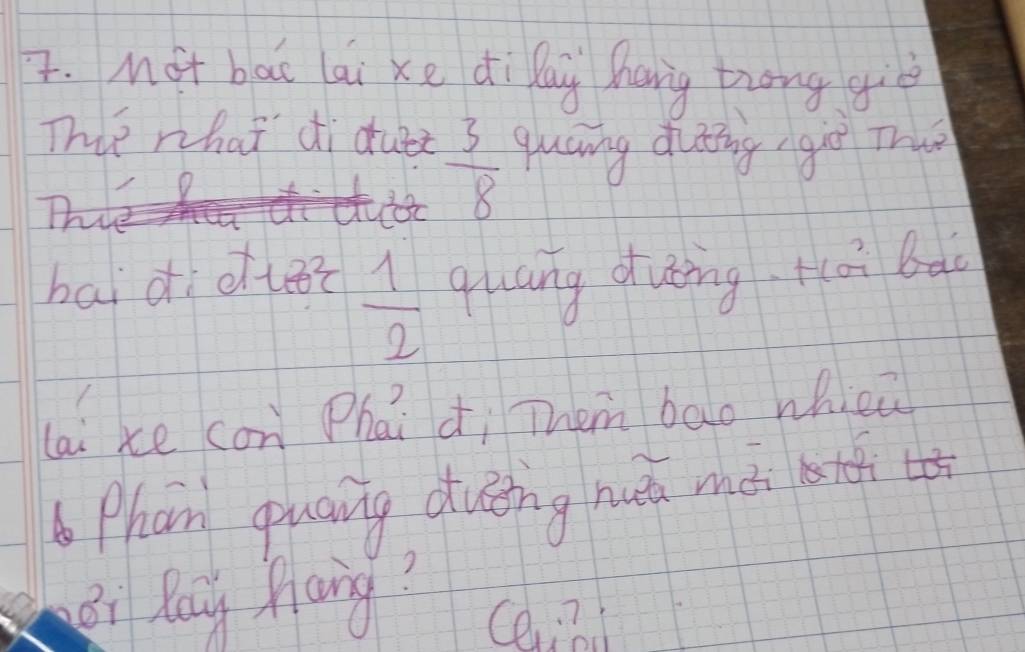 7. Một bác lái xe đi lấy hàng trong giờ
Thứ nhất đi được 3/8 quãng đường, giờ Thứ
hai đi được 1/2 quãng đường. Hỏi bác
lái xe còn Phải đi Thêm bao nhiêu
Phần quãng đường nữa mới tới
nơi lấy hàng?